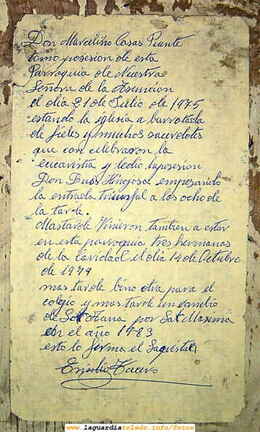 Don Marceliño Casas Puente
tomo posesion de esta
Parroquia de Nuestra
Señora de la Asuncion
el dia 21 de Julio de 1975
estando la iglesia a barrotada
de fieles y muchos sacerdotes
que con celebraron la
eucaristia y ledio laposesion
Don empesando
la entrada triunfal a las ocho de
la tarde.
Mastarde Vinieron tambien a estar
en esta parroquia tres hermanas
de la Caridad el dia 14 de Octubre
de 1979
mas tarde bino otra para el
colegio y mas tarde
de por Sor Maxima
en el año 1983
esto lo firma el Sacristan
Emilio
www.laguardiatoledo.info/fotos